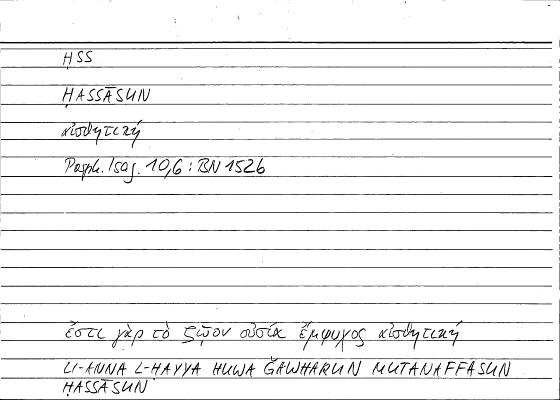 ḤSS
ḤASSĀSUN
αἰσθητική
Porph. Isag. 10,6 : BN 152b
ἔστι γὰρ τὸ ζῷον οὐσία ἔμψυχος αἰσθητική
LI-ANNA L-ḤAYYA HUWA ǦAWHARUN MUTANAFFASUN
ḤASSĀSUN